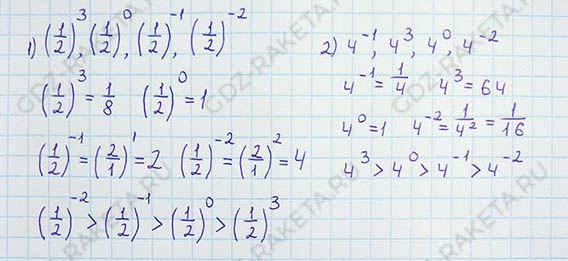 1) (1/2)³, (1/2)⁰, (1/2)⁻¹, (1/2)⁻²
(1/2)³ = 1/8 (1/2)⁰ = 1
(1/2)⁻¹ = (2/1)¹ = 2 (1/2)⁻² = (2/1)² = 4
(1/2)⁻² > (1/2)⁻¹ > (1/2)⁰ > (1/2)³
2) 4⁻¹, 4³, 4⁰, 4⁻²
4⁻¹ = 1/4 4³ = 64
4⁰ = 1 4⁻² = 1/4² = 1/16
4³ > 4⁰ > 4⁻¹ > 4⁻²
GDZ-RAKETA.RU